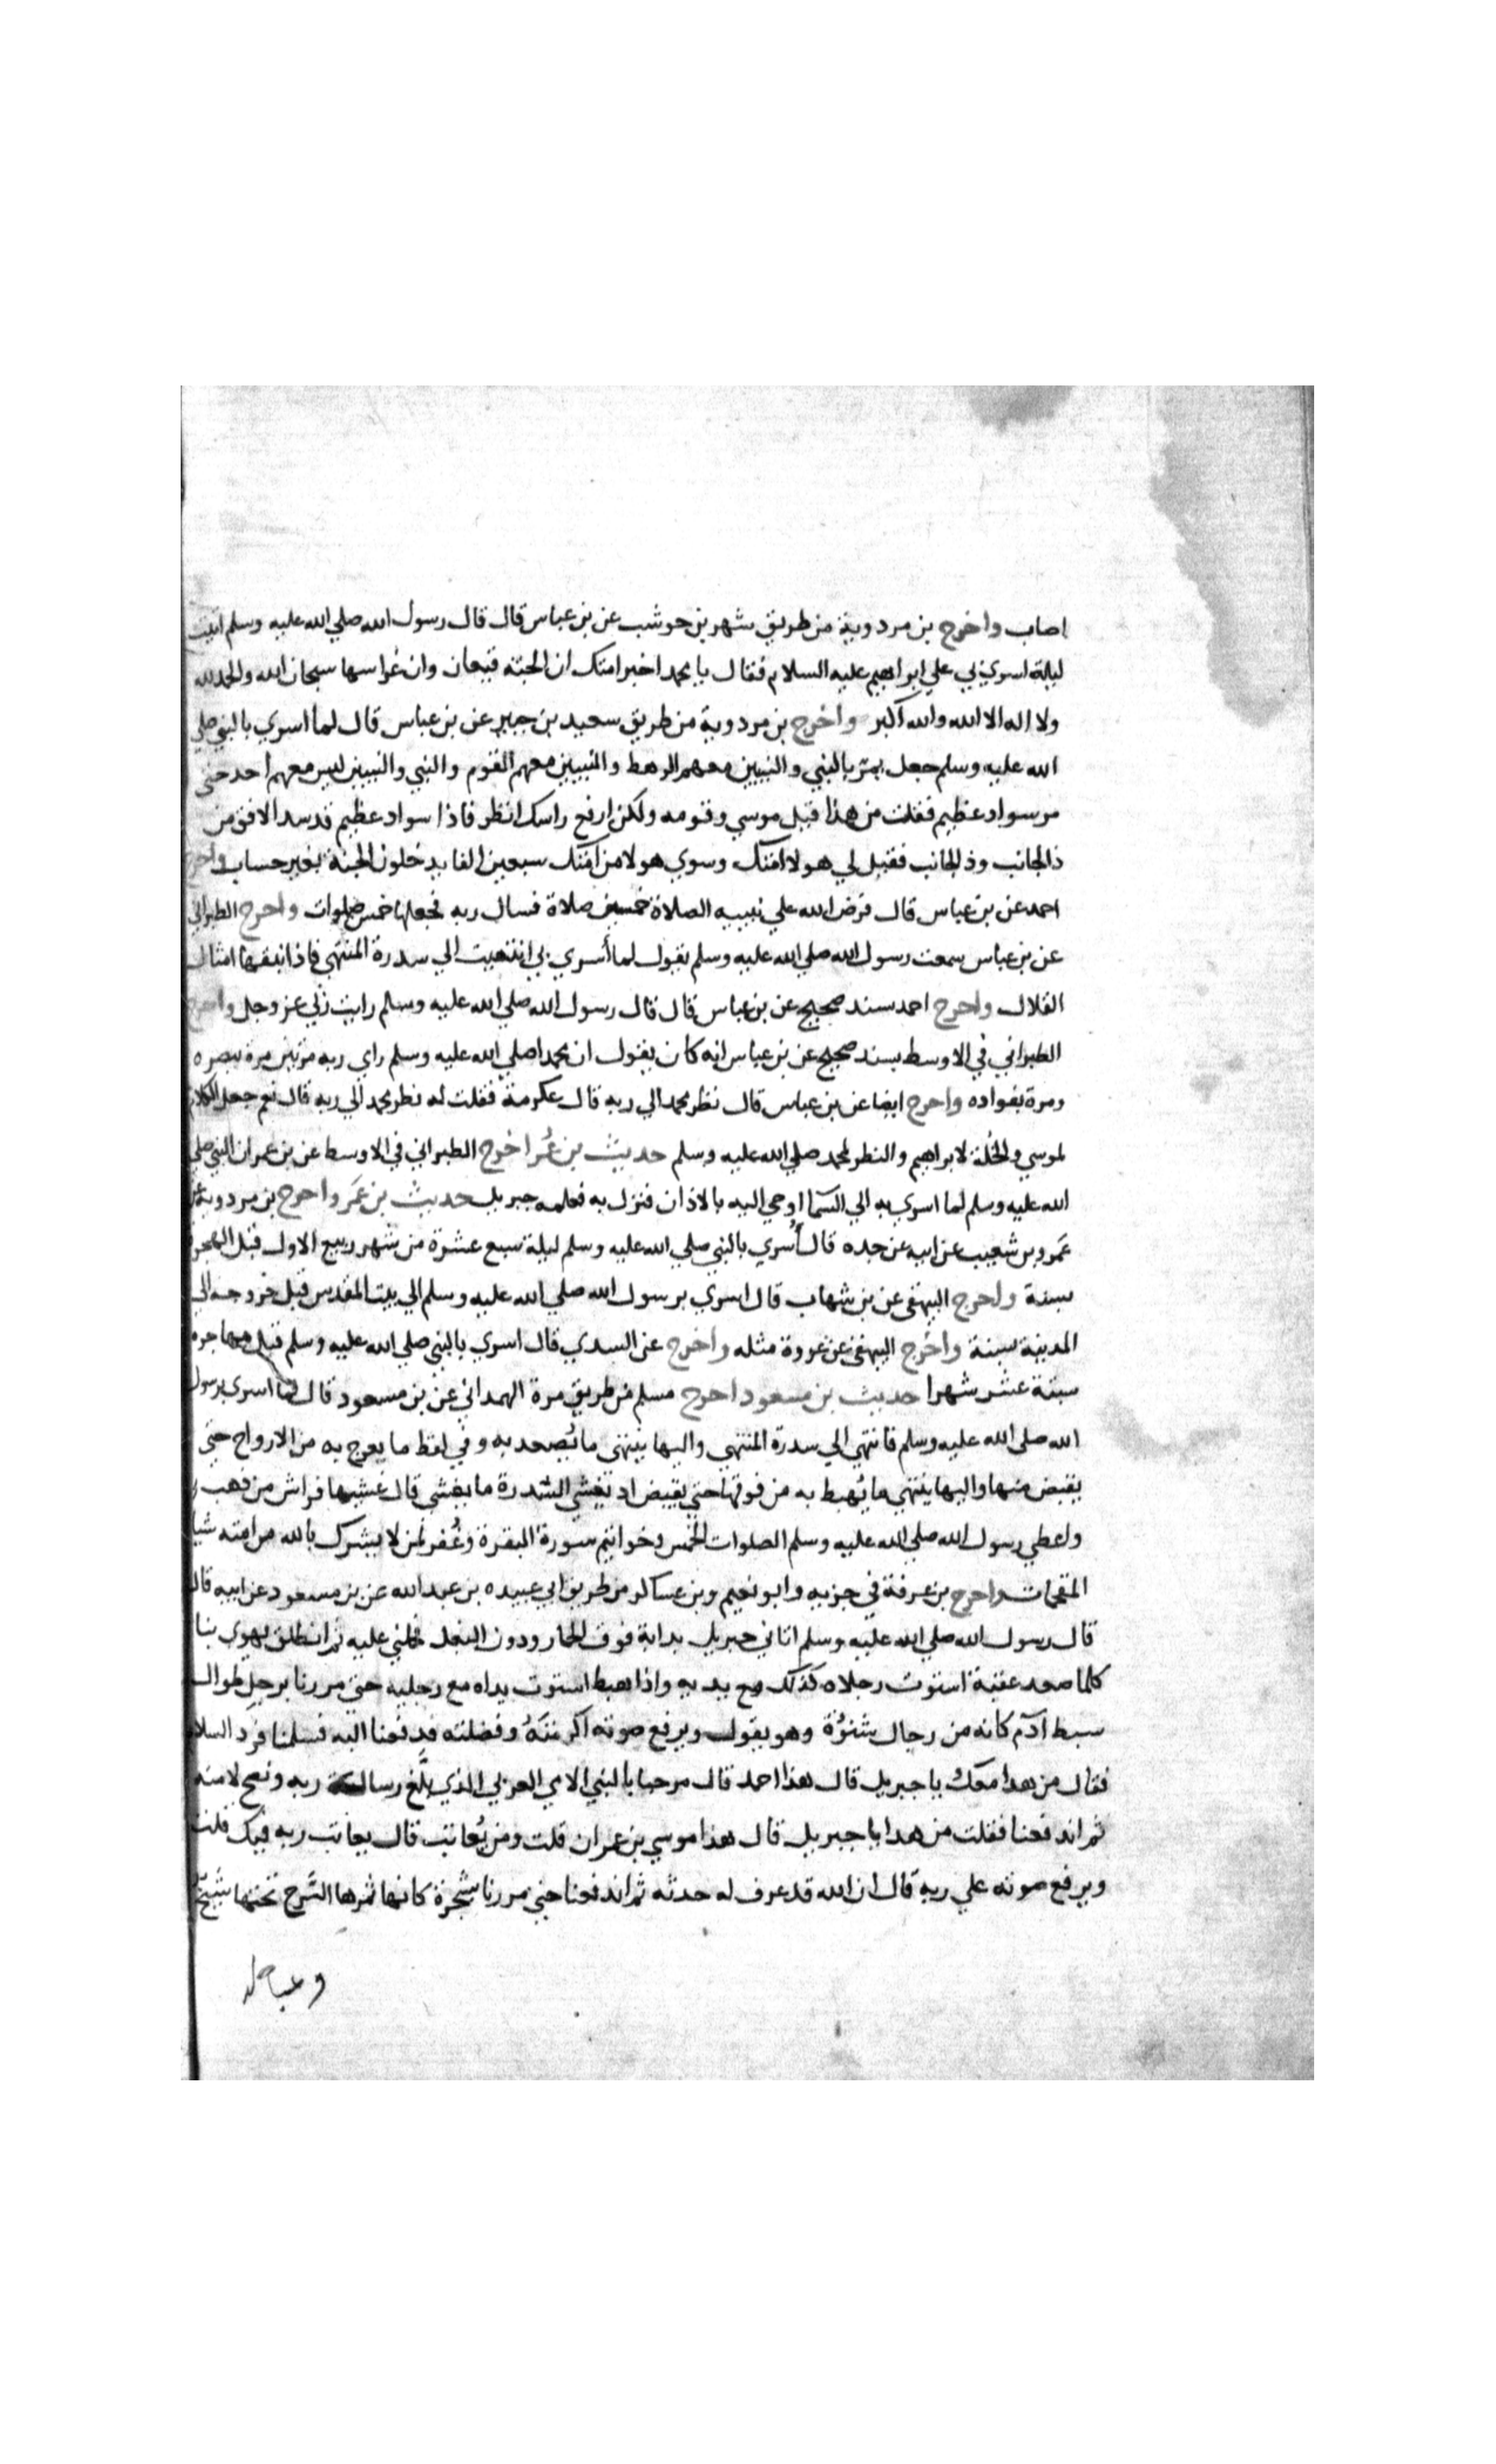 اصاب واخرج بن مردوية من طريق شهر بن حوشب عن بن عباس قال قال رسول الله صلي الله عليه وسلم اتيت
ليلة اسري بي علي ابراهيم عليه السلام فقال يا محمد اخبر امتك ان الجنة قيعان وان غراسها سبحان الله والحمد لله
ولا اله الا الله والله اكبر واخرج بن مردوية من طريق سعيد بن جبير عن بن عباس قال لما اسري بالنبي صلي
الله عليه وسلم جعل يمر بالنبي والنبيين معهم الرهط والنبيين معهم القوم والنبي والنبيين ليس معهم احد حتي
مر سواد عظيم فقلت من هذا قيل موسي وقومه ولكن ارفع راسك انظر فاذا سواد عظيم قد سد الافق من
ذا الجانب وذ الجانب فقيل لي هولا امتك وسوي هولا من امتك سبعين الفا يدخلون الجنة بغير حساب واخرج
احمد عن بن عباس قال فرض الله علي نبييه الصلاة خمسين صلاة فسال ربه فجعلها خمس صلوات واخرج الطبراني
عن بن عباس سمعت رسول الله صلي الله عليه وسلم يقول لما أسري بي انتهيت الي سدرة المنتهي فاذا نبقها امثال
القلال واخرج احمد بسند صحيح عن بن عباس قال قال رسول الله صلي الله عليه وسلم رايت ربي عز وجل واخرج
الطبراني في الاوسط بسند صحيح عن بن عباس انه كان يقول ان محمدا صلي الله عليه وسلم راي ربه مرتين مرة ببصره
ومرة بفواده واخرج ايضا عن بن عباس قال نظر محمد الي ربه قال عكرمة فقلت له نظر محمد الي ربه قال نعم جعل الكلام
لموسي والخلة لابراهيم والنظر لمحمد صلي الله عليه وسلم حديث بن عُمر اخرج الطبراني في الاوسط عن بن عمر ان النبي صلي
الله عليه وسلم لما اسري به الي السما اوحي اليه بالاذان فنزل به فعلمه جبريل حديث بن عمَر واخرج بن مردوية عن
عَمرو بن شعيب عن ابيه عن جده قال أُسري بالنبي صلي الله عليه وسلم ليلة سبع عشرة من شهر ربيع الاول قبل الهجرة
بسنة واخرج البيهقي عن بن شهاب قال اسري برسول الله صلي الله عليه وسلم الي بيت المقدس قبل خروجه الي
المدينة بسنة واخرج البيهقي عن عروة مثله واخرج عن السدي قال اسري بالنبي صلي الله عليه وسلم قبل مهاجره
بستة عشر شهرا حديث بن مسعود اخرج مسلم من طريق مرة الهمداني عن بن مسعود قال لما اسري برسول
الله صلي الله عليه وسلم فانتهي الي سدرة المنتهي واليها ينتهي ما يُصعد به وفي لفظ ما يعرج به من الارواح حتي
يقبض منها واليها ينتهي ما يُهبط به من فوقها حتي يقبض اد يغشي السدرة ما يغشي قال غشيها فراش من ذهب
واعطي رسول الله صلي الله عليه وسلم الصلوات الخمس وخواتيم سورة البقرة وغُفر لمن لا يشرك بالله من امته شيا
المقحمات واخرج بن عرفة في جزيه وابو نعيم وبن عساكر من طريق ابي عبيده بن عبد الله عن بن مسعود عن ابيه قال
قال رسول الله صلي الله عليه وسلم اتاني جبريل بدابة فوق الحمار ودون البغل فحملني عليه ثم انطلق يهوي بنا
كلما صعد عقبة استوت رجلاه كذلك مع يديه واذا هبط استوت يداه مع رجليه حتي مررنا برجل طوال
سبط آدم كانه من رجال شنؤة وهو يقول ويرفع صوته اكرمتَهُ وفضلته فدفعنا اليه فسلمنا فرد السلام
فقال من هذا معك يا جبريل قال هذا احمد قال مرحبا بالنبي الامي العربي الذي بلَّغ رسالة ربه ونصح لامته
ثم اندفعنا فقلت من هدا يا جبريل قال هذا موسي بن عمران قلت ومن يُعاتب قال يعاتب ربه فيك قلت
ويرفع صوته علي ربه قال ان الله قد عرف له حدته ثم اندفعنا حتي مررنا بشجرة كانها ثمرها السَّرج تحتها شيخٌ
وعياله